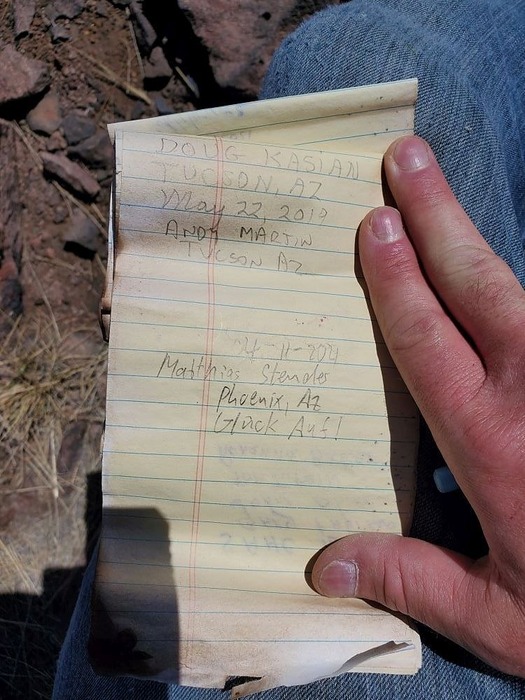 DOUG KASIAN
TUCSON, AZ
May 22, 2019
ANDY MARTIN
TUCSON AZ
4-11-2021
Matthias Stender
Phoenix, Az
Glück Auf!